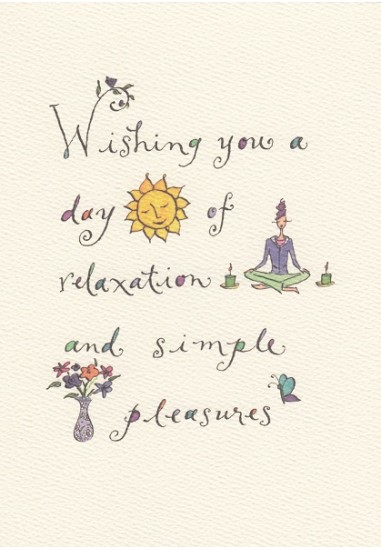 Wishing you a
day of
relaxation
and simple
pleasures